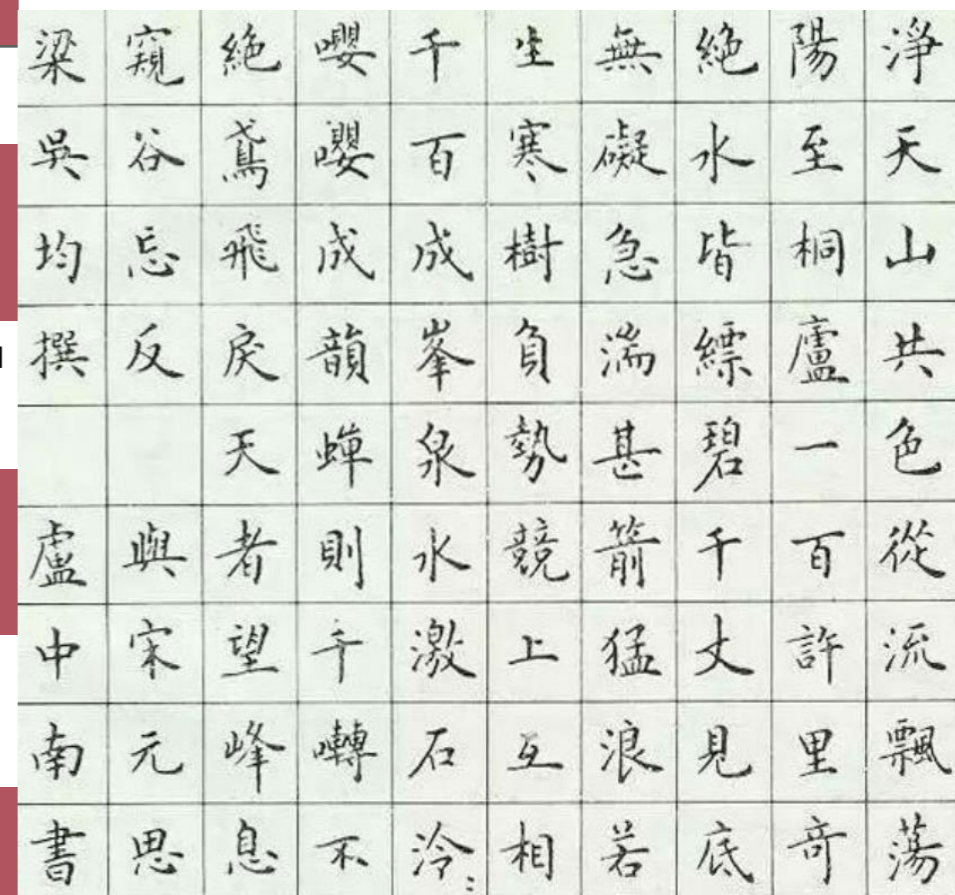 淨天山共色從流飄蕩
陽至桐廬一百許里奇
絕水皆縹碧千丈見底
無礙急湍甚箭猛浪若
生寒樹負勢競上互相
千百成峯泉水激石泠
嚶嚶成韻蟬則千囀不
絕鳶飛戾天者望峰息
窺谷忘反 與宋元思
梁吳均撰 盧中南書